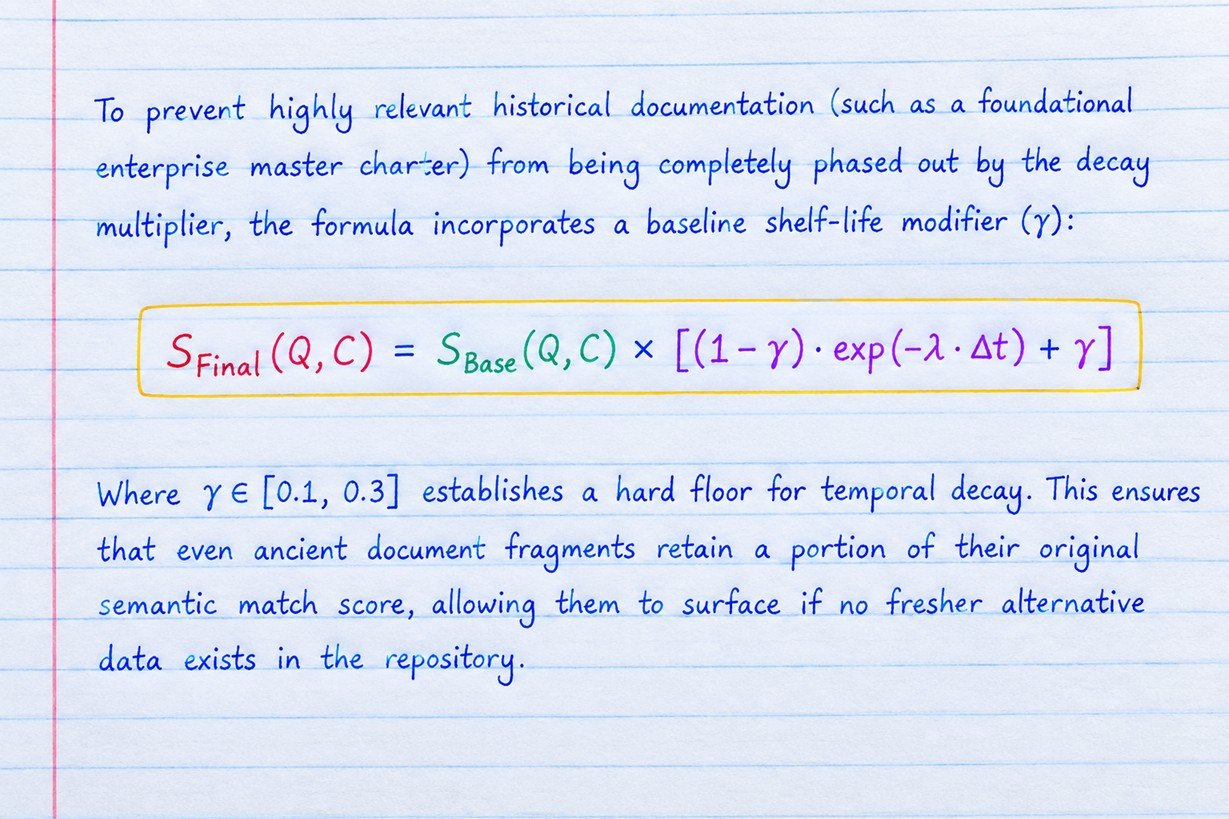 To prevent highly relevant historical documentation (such as a foundational
enterprise master charter) from being completely phased out by the decay
multiplier, the formula incorporates a baseline shelf-life modifier (γ):
S_Final (Q, C) = S_Base (Q, C) × [(1 - γ) · exp(-λ · Δt) + γ]
Where γ ∈ [0.1, 0.3] establishes a hard floor for temporal decay. This ensures
that even ancient document fragments retain a portion of their original
semantic match score, allowing them to surface if no fresher alternative
data exists in the repository.